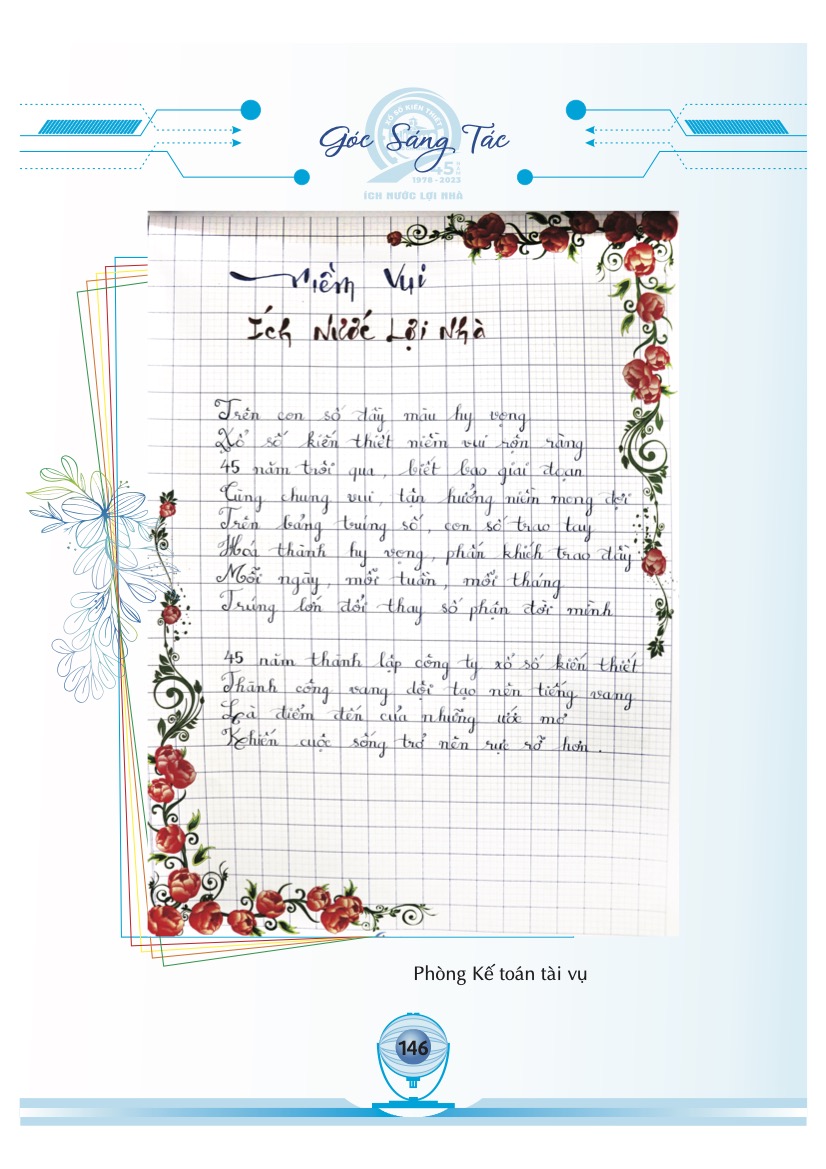 XỔ SỐ KIẾN THIẾT
Góc Sáng Tác
45
1978 - 2023
ÍCH NƯỚC LỢI NHÀ
Niềm Vui
Ích Nước Lợi Nhà
Trên con số đầy màu hy vọng
Xổ số kiến thiết niềm vui rộn ràng
45 năm trôi qua, biết bao giai đoạn
Cùng chung vui, tận hưởng niềm mong đợi
Trên bảng trúng số, con số trao tay
Hoá thành hy vọng, phấn khích trao đầy
Mỗi ngày, mỗi tuần, mỗi tháng
Trúng lớn đổi thay số phận đời mình
45 năm thành lập công ty xổ số kiến thiết
Thành công vang dội tạo nên tiếng vang
Là điểm đến của những ước mơ
Khiến cuộc sống trở nên rực rỡ hơn.
Phòng Kế toán tài vụ
146